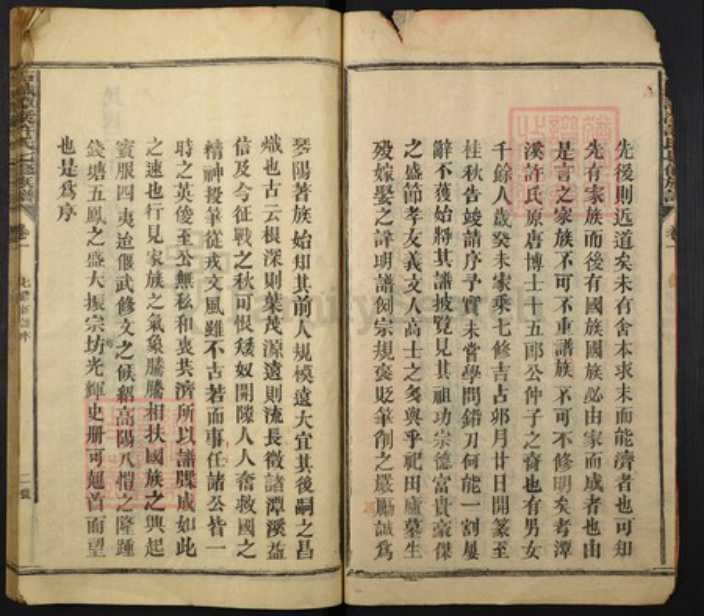 先後則近道矣未有舍本求末而能濟者也可知
先有家族而後有國族國族必由家而成者也由
是言之家族不可不重譜族不可不修明矣考潭
溪許氏原唐博士十五郎公仲子之裔也有男女
千餘人歲癸未家乘七修吉占卯月廿日開篆至
桂秋告竣請序予實未嘗學問鉛刀何能一割屢
辭不獲始將其譜披覽見其祖功宗德富貴豪傑
之盛節孝友義文人高士之多與乎祀田廬墓生
歿嫁娶之詳明譜例宗規褒貶筆削之嚴厲誠為
琴陽著族始知其前人規模遠大宜其後嗣之昌
熾也古云根深則葉茂源遠則流長徵諸潭溪益
信及今征戰之秋可恨矮奴開隙人人奮救國之
精神投筆從戎文風雖不古若而事任諸公皆一
時之英俊至公無私和衷共濟所以譜牒成如此
之速也行見家族之氣象騰騰相扶國族之興起
賓服四夷迨偃武修文之候紹高陽八愷之隆踵
錢塘五鳳之盛大振宗坊光輝史册可翹首而望
也是為序